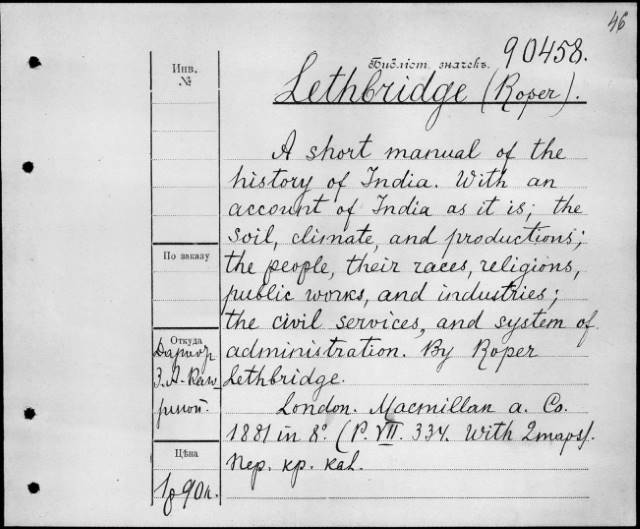 46
Инв.
№
Библіот. значекъ.
90458.
Lethbridge (Roper).
A short manual of the
history of India. With an
account of India as it is; the
soil, climate, and productions;
the people, their races, religions,
public works, and industries;
the civil services, and system of
administration. By Roper
Lethbridge.
London. Macmillan a. Co.
1881 in 8° (P. VII. 334. With 2 maps).
Пер. кр. кал.
По заказу
Откуда
Цѣна
1р 90к.